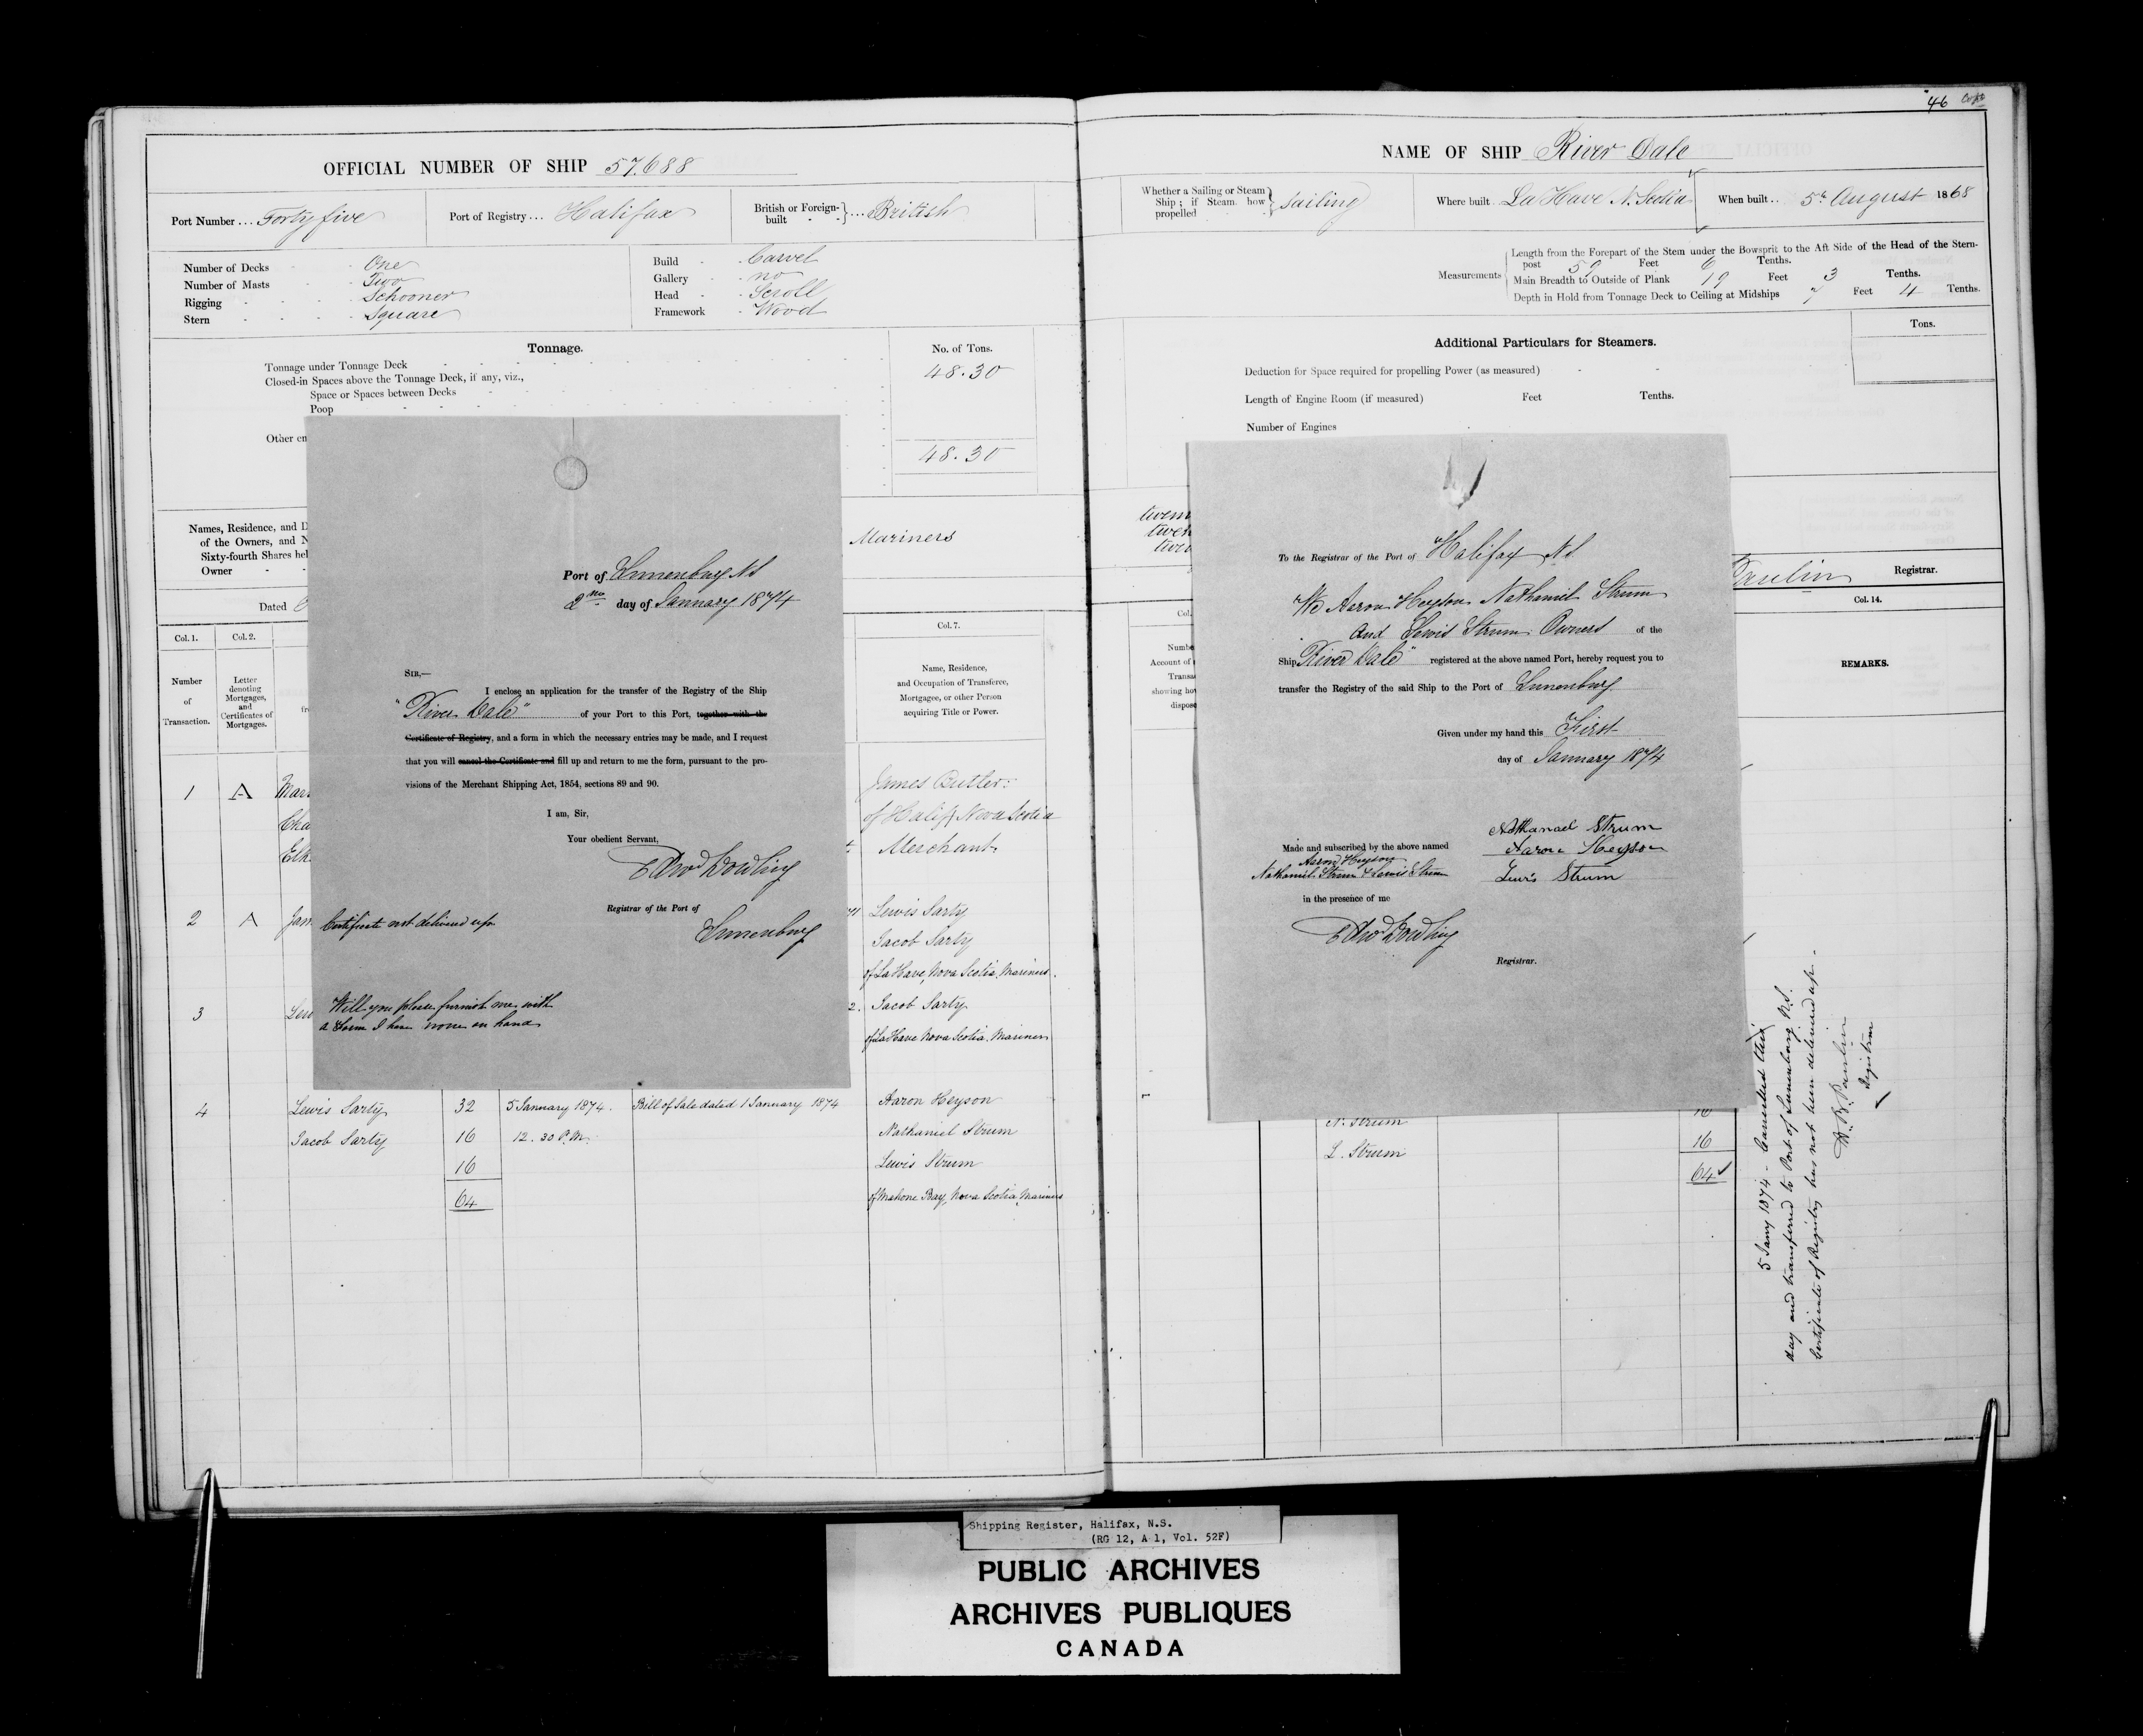 OFFICIAL NUMBER OF SHIP 57.688
Port Number ... Forty five
Port of Registry ... Halifax
British or Foreign-built ... British
Number of Decks One
Number of Masts Two
Rigging Schooner
Stern Square
Build Carvel
Gallery no
Head Scroll
Framework Wood
Tonnage.
No. of Tons.
Tonnage under Tonnage Deck 48.30
Closed-in Spaces above the Tonnage Deck, if any, viz.,
Space or Spaces between Decks
Poop
Other en
48.30
Names, Residence, and D
of the Owners, and N
Sixty-fourth Shares hel
Owner
Mariners
Dated
Col. 1.
Col. 2.
Col. 7.
Number
of
Transaction.
Letter
denoting
Mortgages,
and
Certificates of
Mortgages.
fr
Name, Residence,
and Occupation of Transferee,
Mortgagee, or other Person
acquiring Title or Power.
1 A Mar
Cha
Elk
James Butler
of Halifx Nova Scotia
Merchant
2 A Jam
Lewis Sarty
Jacob Sarty
of La Have, Nova Scotia, Mariners.
3 Lew
2. Jacob Sarty
of La Have Nova Scotia. Mariners
4 Lewis Sarty 32 5 January 1874. Bill of Sale dated 1 January 1874 Aaron Heyson
Jacob Sarty 16 12.30 P.M. Nathaniel Strum
16 Lewis Strum
64 of Mahone Bay, Nova Scotia Mariners
Port of Lunenburg NS
2nd day of January 1874
SIR,—
I enclose an application for the transfer of the Registry of the Ship
"River Dale" of your Port to this Port, together with the
Certificate of Registry, and a form in which the necessary entries may be made, and I request
that you will cancel the Certificate and fill up and return to me the form, pursuant to the pro-
visions of the Merchant Shipping Act, 1854, sections 89 and 90.
I am, Sir,
Your obedient Servant,
Edwd Dowling
Registrar of the Port of
Lunenburg
Certificate not delivered up
Will you please furnish me with
a Form I have none on hand
46
NAME OF SHIP River Dale
Whether a Sailing or Steam
Ship; if Steam how
propelled
Sailing
Where built La Have N. Scotia
When built .. 5th August 1868
Measurements
Length from the Forepart of the Stem under the Bowsprit to the Aft Side of the Head of the Stern-
post 59 Feet 6 Tenths.
Main Breadth to Outside of Plank 19 Feet 3 Tenths.
Depth in Hold from Tonnage Deck to Ceiling at Midships 7 Feet 4 Tenths.
Tons.
Additional Particulars for Steamers.
Deduction for Space required for propelling Power (as measured)
Length of Engine Room (if measured) Feet Tenths.
Number of Engines
Registrar.
Col.
Col. 14.
Numbe
Account of
Transa
showing ho
dispose
REMARKS.
To the Registrar of the Port of Halifax NS
We Aaron Heyson Nathaniel Strum
and Lewis Strum Owners of the
Ship "River Dale" registered at the above named Port, hereby request you to
transfer the Registry of the said Ship to the Port of Lunenburg
Given under my hand this First
day of January 1874
Nathanael Strum
Aaron Heyson
Lewis Strum
Made and subscribed by the above named
Aaron Heyson
Nathaniel Strum & Lewis Strum
in the presence of me
Edwd Dowling
Registrar.
16
N. Strum 16
L. Strum
64
5 Jany 1874 – Cancelled this
day and transferred to Port of Lunenburg N.S.
Certificate of Registry has not been delivered up.
Registrar
Shipping Register, Halifax, N.S.
(RG 12, A 1, Vol. 52F)
PUBLIC ARCHIVES
ARCHIVES PUBLIQUES
CANADA